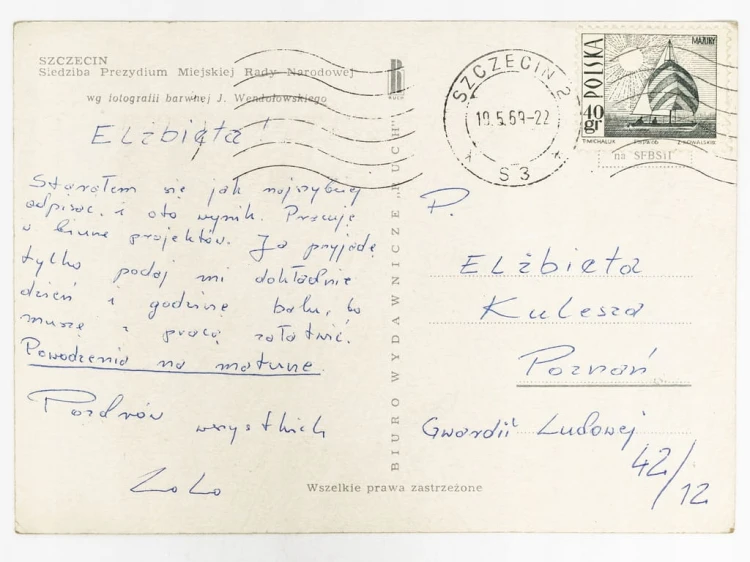 SZCZECIN
Siedziba Prezydium Miejskiej Rady Narodowej
wg fotografii barwnej J. Wendołowskiego
Elżbieta!
Starałem się jak najszybciej
odpisać i oto wynik. Pracuję
w biurze projektów. Ja przyjadę
tylko podaj mi dokładnie
dzień i godzinę balu, bo
muszę z pracą załatwić.
Powodzenia na maturze.
Pozdrów wszystkich
LoLo
BIURO WYDAWNICZE „RUCH"
RUCH
SZCZECIN 2
10.5.69-22
S 3
POLSKA
MAZURY
40 gr
T. MICHALUK
Z. KOWALSKI
na SFBSiI
P.
Elżbieta
Kulesza
Poznań
Gwardii Ludowej
42/12
Wszelkie prawa zastrzeżone